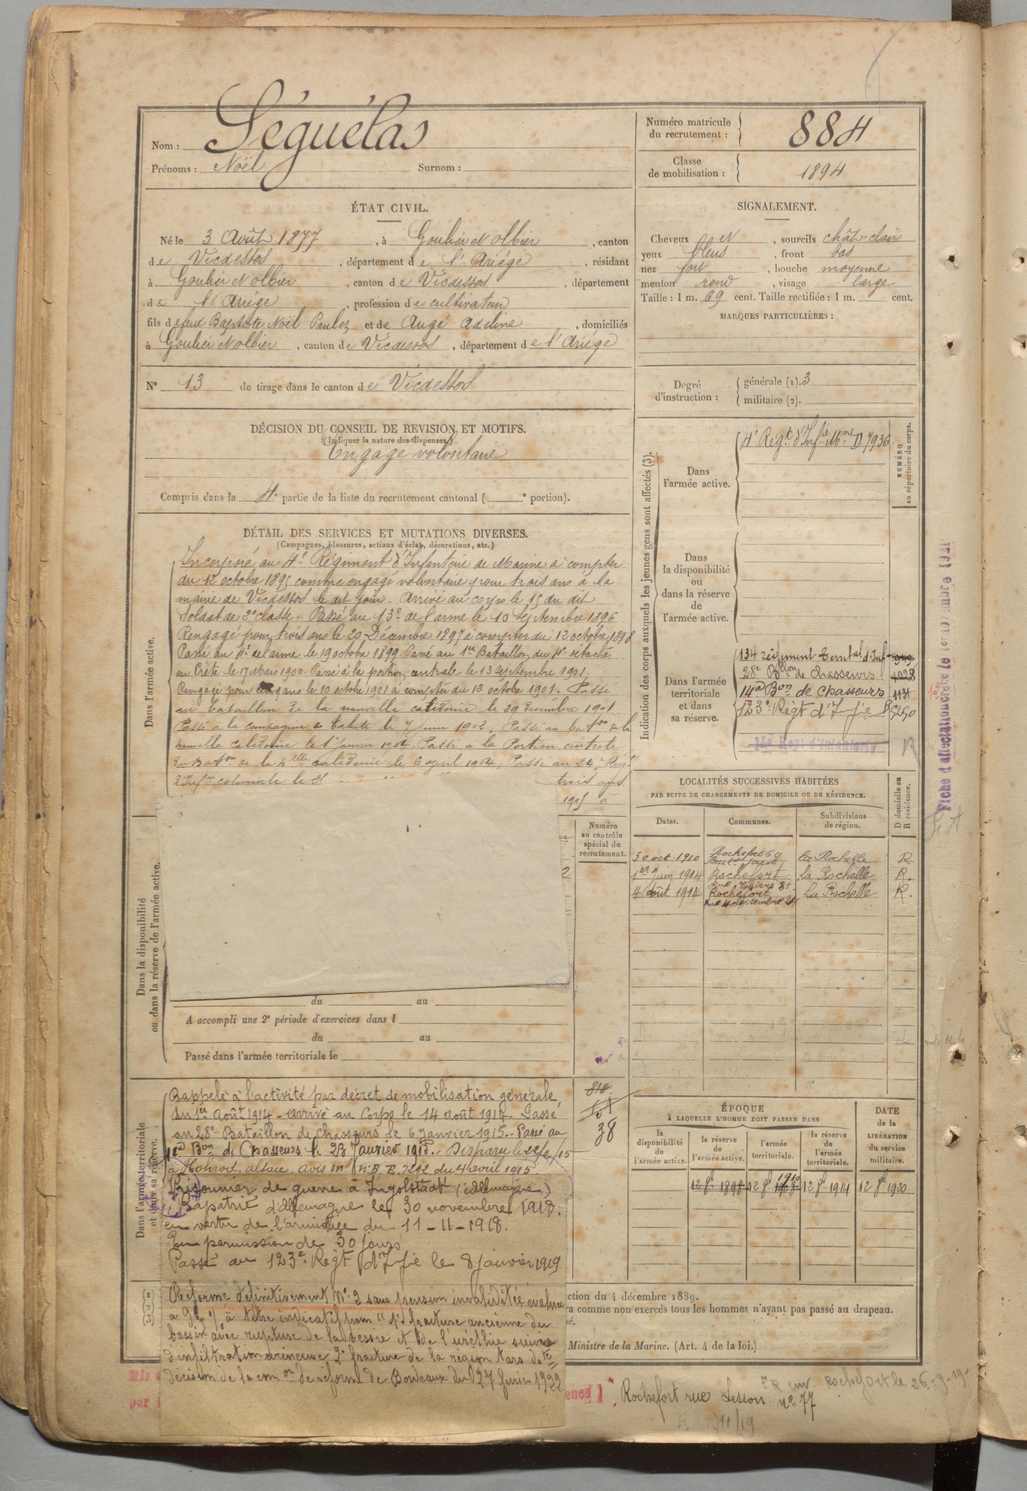 Nom : Séguélas
Prénoms : Noël Surnom :
Numéro matricule du recrutement : 884
Classe de mobilisation : 1894
ÉTAT CIVIL.
Né le 3 Août 1877, à Goulier et Olbier, canton
de Vicdessos, département de l'Ariège, résidant
à Goulier et Olbier, canton de Vicdessos, département
de l'Ariège, profession de cultivateur
fils de feu Baptiste Noël Paulez et de Augé Adeline, domiciliés
à Goulier et Olbier, canton de Vicdessos, département de l'Ariège
N° 13 de tirage dans le canton de Vicdessos
SIGNALEMENT.
Cheveux et, sourcils chât clair
yeux bleus, front bas
nez fort, bouche moyenne
menton rond, visage large
Taille : 1 m. 69 cent. Taille rectifiée : 1 m. cent.
MARQUES PARTICULIÈRES :
Degré d'instruction : générale (1). 3
militaire (2).
DÉCISION DU CONSEIL DE REVISION ET MOTIFS.
(Indiquer la nature des dispenses)
Engagé volontaire
Compris dans la 4e partie de la liste du recrutement cantonal ( e portion).
DÉTAIL DES SERVICES ET MUTATIONS DIVERSES.
(Campagnes, blessures, actions d'éclat, décorations, etc.)
Dans l'armée active.
Incorporé au 4e Régiment d'Infanterie de Marine à compter
du 12 octobre 1895 comme engagé volontaire pour trois ans à la
mairie de Vicdessos le dit jour. Arrivé au corps le 15 du dit
Soldat de 2e classe. Passé au 13e de l'arme le 10 Septembre 1896
Rengagé pour trois ans le 20 Décembre 1897 à compter du 12 octobre 1898
Passé au 4e de l'arme le 19 octobre 1899 Passé au 1er Bataillon du 4e détaché
en Crète le 17 Mars 1900. Passé à la portion centrale le 13 septembre 1901.
Rengagé pour ans le 10 octobre 1901 à compter du 13 octobre 1901. Passé
au bataillon de la nouvelle calédonie le 29 Décembre 1901.
Passé à la compagnie de tahiti le 7 juin 1902. Passé au baton de la
nouvelle calédonie le 1er janvier 1904 Passé à la Portion centrale
du Baton de la nelle calédonie le 6 avril 1904. Passé au 24e Regt
d'Infie coloniale le 21
trois ans
1905 a
Indication des corps auxquels les jeunes gens sont affectés (3).
NUMÉRO au répertoire du corps.
Dans l'armée active.
4e Regt d'Infie Mne D. 7936
Dans la disponibilité ou dans la réserve de l'armée active.
Dans l'armée territoriale et dans sa réserve.
134 régiment Territal d'Inf
28e Bllon de chasseurs 4028
14e Bon de chasseurs 1131
123e Régt d'Ifie
LOCALITÉS SUCCESSIVES HABITÉES
PAR SUITE DE CHANGEMENTS DE DOMICILE OU DE RÉSIDENCE.
Dates. Communes. Subdivisions de région. D domicile ou R résidence.
30 oct. 1910 Rochefort la Rochelle R
1er juin 1914 Rochefort la Rochelle R.
4 Août 1914 Rochefort La Rochelle R.
Numéro au contrôle spécial du recrutement.
Dans la disponibilité ou dans la réserve de l'armée active.
du au
A accompli une 2e période d'exercices dans l
du au
Passé dans l'armée territoriale le
Dans l'armée territoriale et dans sa réserve.
Rappelé à l'activité par décret de mobilisation générale,
du 1er Août 1914 - arrivé au Corps le 14 août 1914. Passé
au 28e Bataillon de Chasseurs le 6 Janvier 1915. - Passé au
14e Bon de Chasseurs le 23 Janvier 1915. Disparu le
à Alsace. Avis ml N° du 4 avril 1915
Prisonnier de guerre à Ingolstadt (Allemagne)
Rapatrié d'Allemagne le 30 novembre 1918.
en vertu de l'armistice du 11-11-1918.
En permission de 30 jours
Passé au 123e Régt d'Ifie le 8 janvier 1919
Réformé définitivement N° 2 sans pension invalidité évaluée
à titre indicatif pour 1° fracture ancienne du
bassin avec rupture de la vessie et de l'urèthre suivie
d'infiltration urineuse 2° fracture de la région tars
décision de la comon de réforme de Bordeaux du 27 février 1922
38
ÉPOQUE
À LAQUELLE L'HOMME DOIT PASSER DANS
la disponibilité de l'armée active. la réserve de l'armée active. l'armée territoriale. la réserve de l'armée territoriale. DATE de la LIBÉRATION du service militaire.
12 8bre 1898 12 8bre 12 8bre 1914 12 8bre 1920
ction du 4 décembre 1889.
ra comme non exercés tous les hommes n'ayant pas passé au drapeau.
Ministre de la Marine. (Art. 4 de la loi.)
Rochefort rue Lesson n° 77
Rochefort le